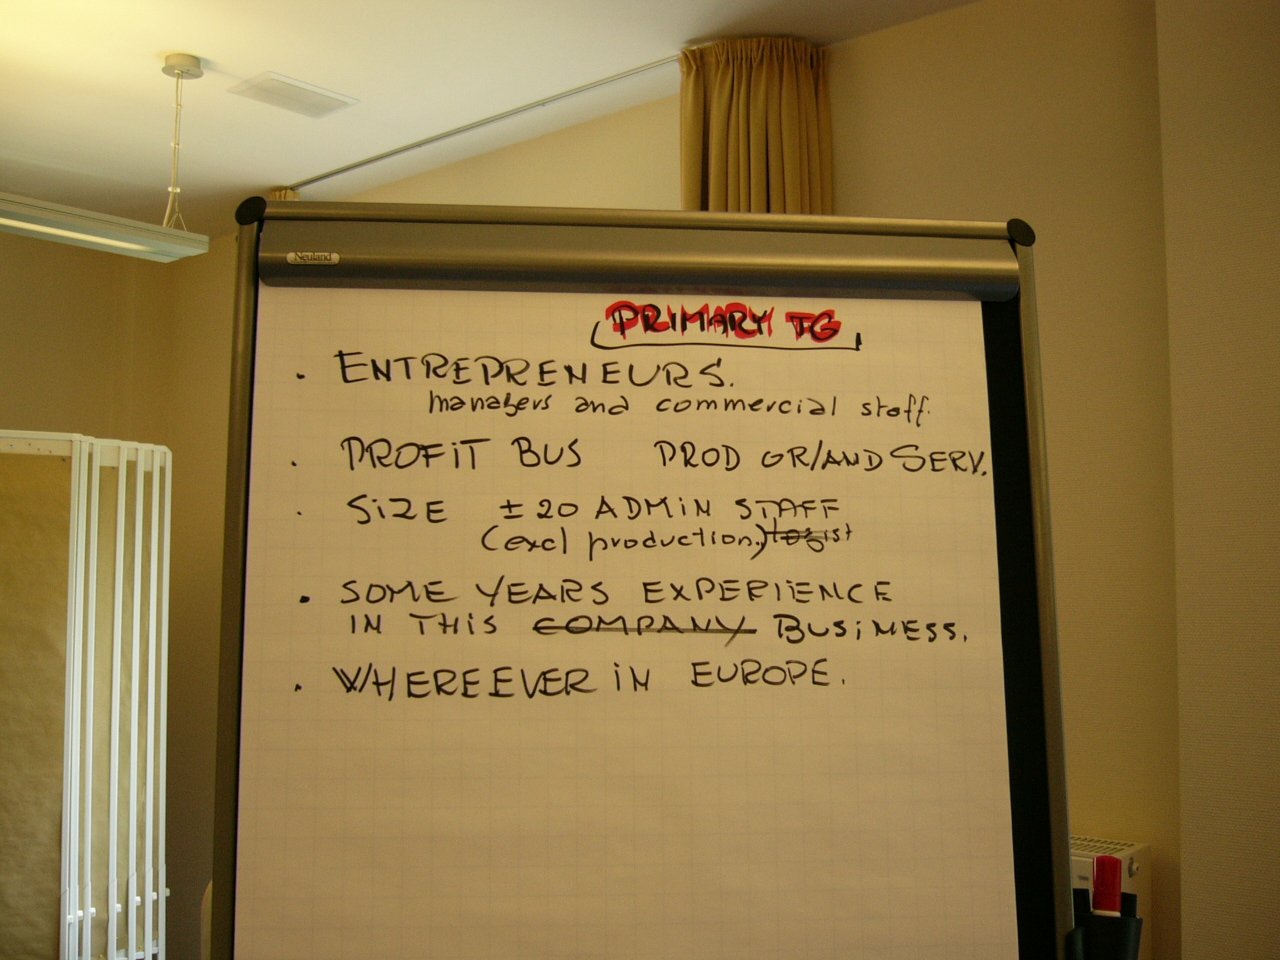 Neuland
PRIMARY TG
. ENTREPRENEURS.
managers and commercial staff.
. PROFIT BUS PROD OR/AND SERV.
. SIZE ±20 ADMIN STAFF
(excl production.) logist
. SOME YEARS EXPERIENCE
IN THIS COMPANY BUSINESS.
. WHEREEVER IN EUROPE.